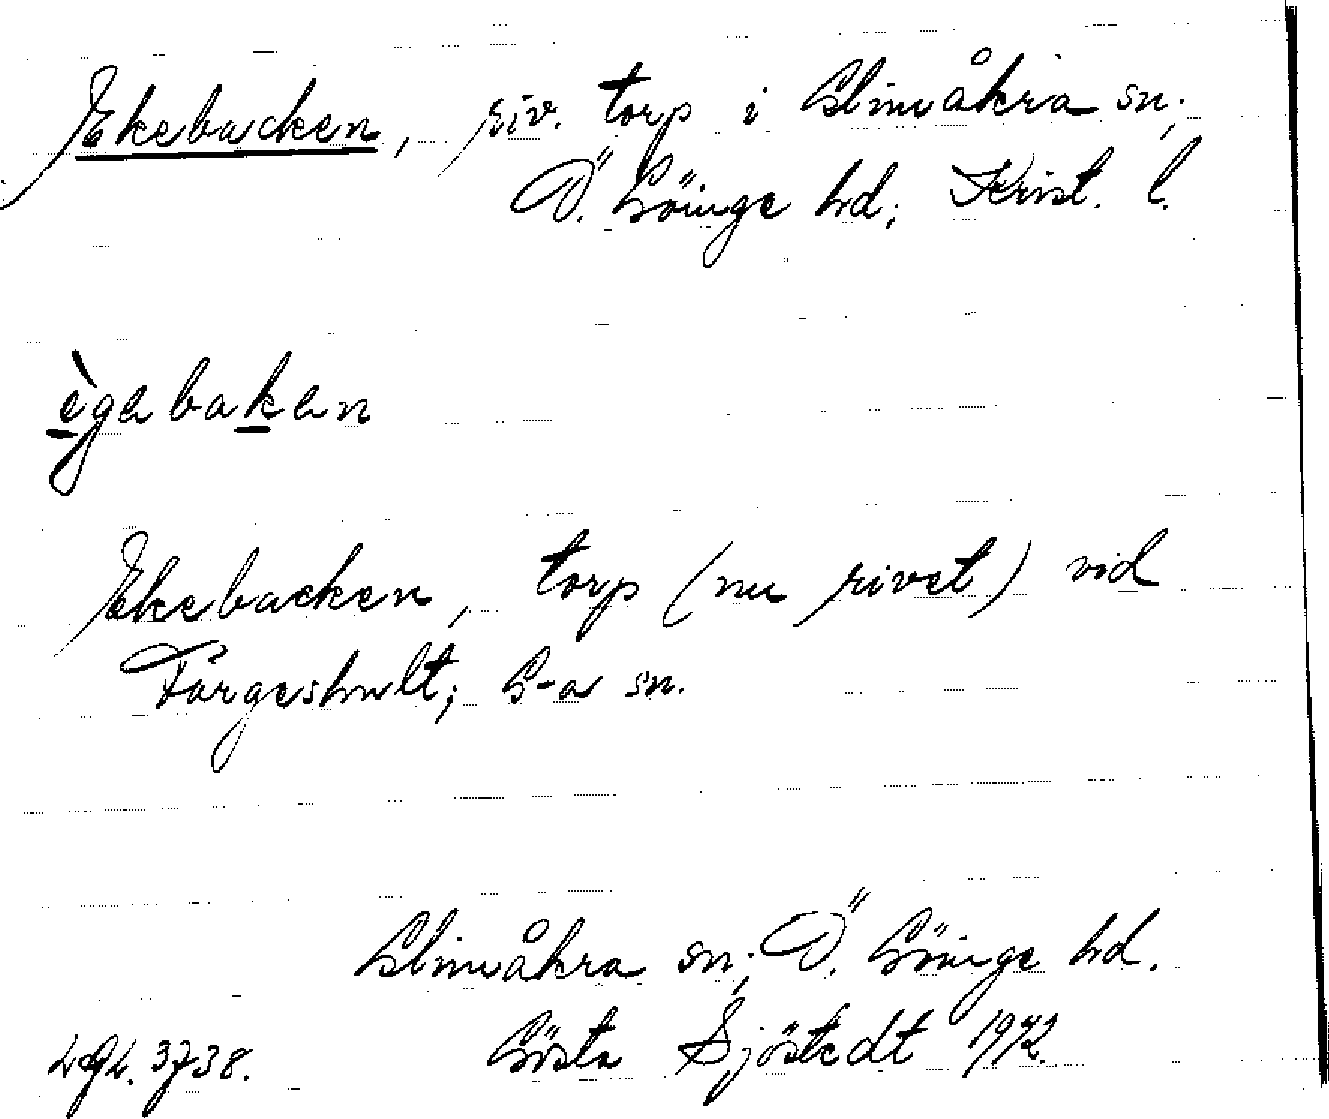 Ekebacken, riv. torp i Glimåkra sn,
Ö. Göinge hd; Krist. l.
ègabakan
Ekebacken, torp (nu rivet) vid
Färgeshult; G-a sn.
Glimåkra sn; Ö. Göinge hd.
Gösta Sjöstedt 1972.
3738.